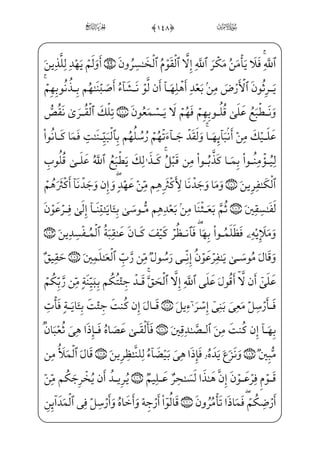 سورة الأعراف ﴿١٤٨﴾ الجزء التاسع
ٱللَّهِ ۚ فَلَا يَأْمَنُ مَكْرَ ٱللَّهِ إِلَّا ٱلْقَوْمُ ٱلْخَـٰسِرُونَ ﴿٩٩﴾ أَوَلَمْ يَهْدِ لِلَّذِينَ
يَرِثُونَ ٱلْأَرْضَ مِنۢ بَعْدِ أَهْلِهَآ أَن لَّوْ نَشَآءُ أَصَبْنَـٰهُم بِذُنُوبِهِمْ ۚ
وَنَطْبَعُ عَلَىٰ قُلُوبِهِمْ فَهُمْ لَا يَسْمَعُونَ ﴿١٠٠﴾ تِلْكَ ٱلْقُرَىٰ نَقُصُّ
عَلَيْكَ مِنْ أَنۢبَآئِهَا ۚ وَلَقَدْ جَآءَتْهُمْ رُسُلُهُم بِٱلْبَيِّنَـٰتِ فَمَا كَانُوا۟
لِيُؤْمِنُوا۟ بِمَا كَذَّبُوا۟ مِن قَبْلُ ۚ كَذَٰلِكَ يَطْبَعُ ٱللَّهُ عَلَىٰ قُلُوبِ
ٱلْكَـٰفِرِينَ ﴿١٠١﴾ وَمَا وَجَدْنَا لِأَكْثَرِهِم مِّنْ عَهْدٍ ۖ وَإِن وَجَدْنَآ أَكْثَرَهُمْ
لَفَـٰسِقِينَ ﴿١٠٢﴾ ثُمَّ بَعَثْنَا مِنۢ بَعْدِهِم مُّوسَىٰ بِـَٔايَـٰتِنَآ إِلَىٰ فِرْعَوْنَ
وَمَلَإِي۟هِۦ فَظَلَمُوا۟ بِهَا ۖ فَٱنظُرْ كَيْفَ كَانَ عَـٰقِبَةُ ٱلْمُفْسِدِينَ ﴿١٠٣﴾
وَقَالَ مُوسَىٰ يَـٰفِرْعَوْنُ إِنِّى رَسُولٌ مِّن رَّبِّ ٱلْعَـٰلَمِينَ ﴿١٠٤﴾ حَقِيقٌ
عَلَىٰٓ أَن لَّآ أَقُولَ عَلَى ٱللَّهِ إِلَّا ٱلْحَقَّ ۚ قَدْ جِئْتُكُم بِبَيِّنَةٍ مِّن رَّبِّكُمْ
فَأَرْسِلْ مَعِىَ بَنِىٓ إِسْرَٰٓءِيلَ ﴿١٠٥﴾ قَالَ إِن كُنتَ جِئْتَ بِـَٔايَةٍ فَأْتِ
بِهَآ إِن كُنتَ مِنَ ٱلصَّـٰدِقِينَ ﴿١٠٦﴾ فَأَلْقَىٰ عَصَاهُ فَإِذَا هِىَ ثُعْبَانٌ
مُّبِينٌ ﴿١٠٧﴾ وَنَزَعَ يَدَهُۥ فَإِذَا هِىَ بَيْضَآءُ لِلنَّـٰظِرِينَ ﴿١٠٨﴾ قَالَ ٱلْمَلَأُ مِن
قَوْمِ فِرْعَوْنَ إِنَّ هَـٰذَا لَسَـٰحِرٌ عَلِيمٌ ﴿١٠٩﴾ يُرِيدُ أَن يُخْرِجَكُم مِّنْ
أَرْضِكُمْ ۖ فَمَاذَا تَأْمُرُونَ ﴿١١٠﴾ قَالُوٓا۟ أَرْجِهْ وَأَخَاهُ وَأَرْسِلْ فِى ٱلْمَدَآئِنِ